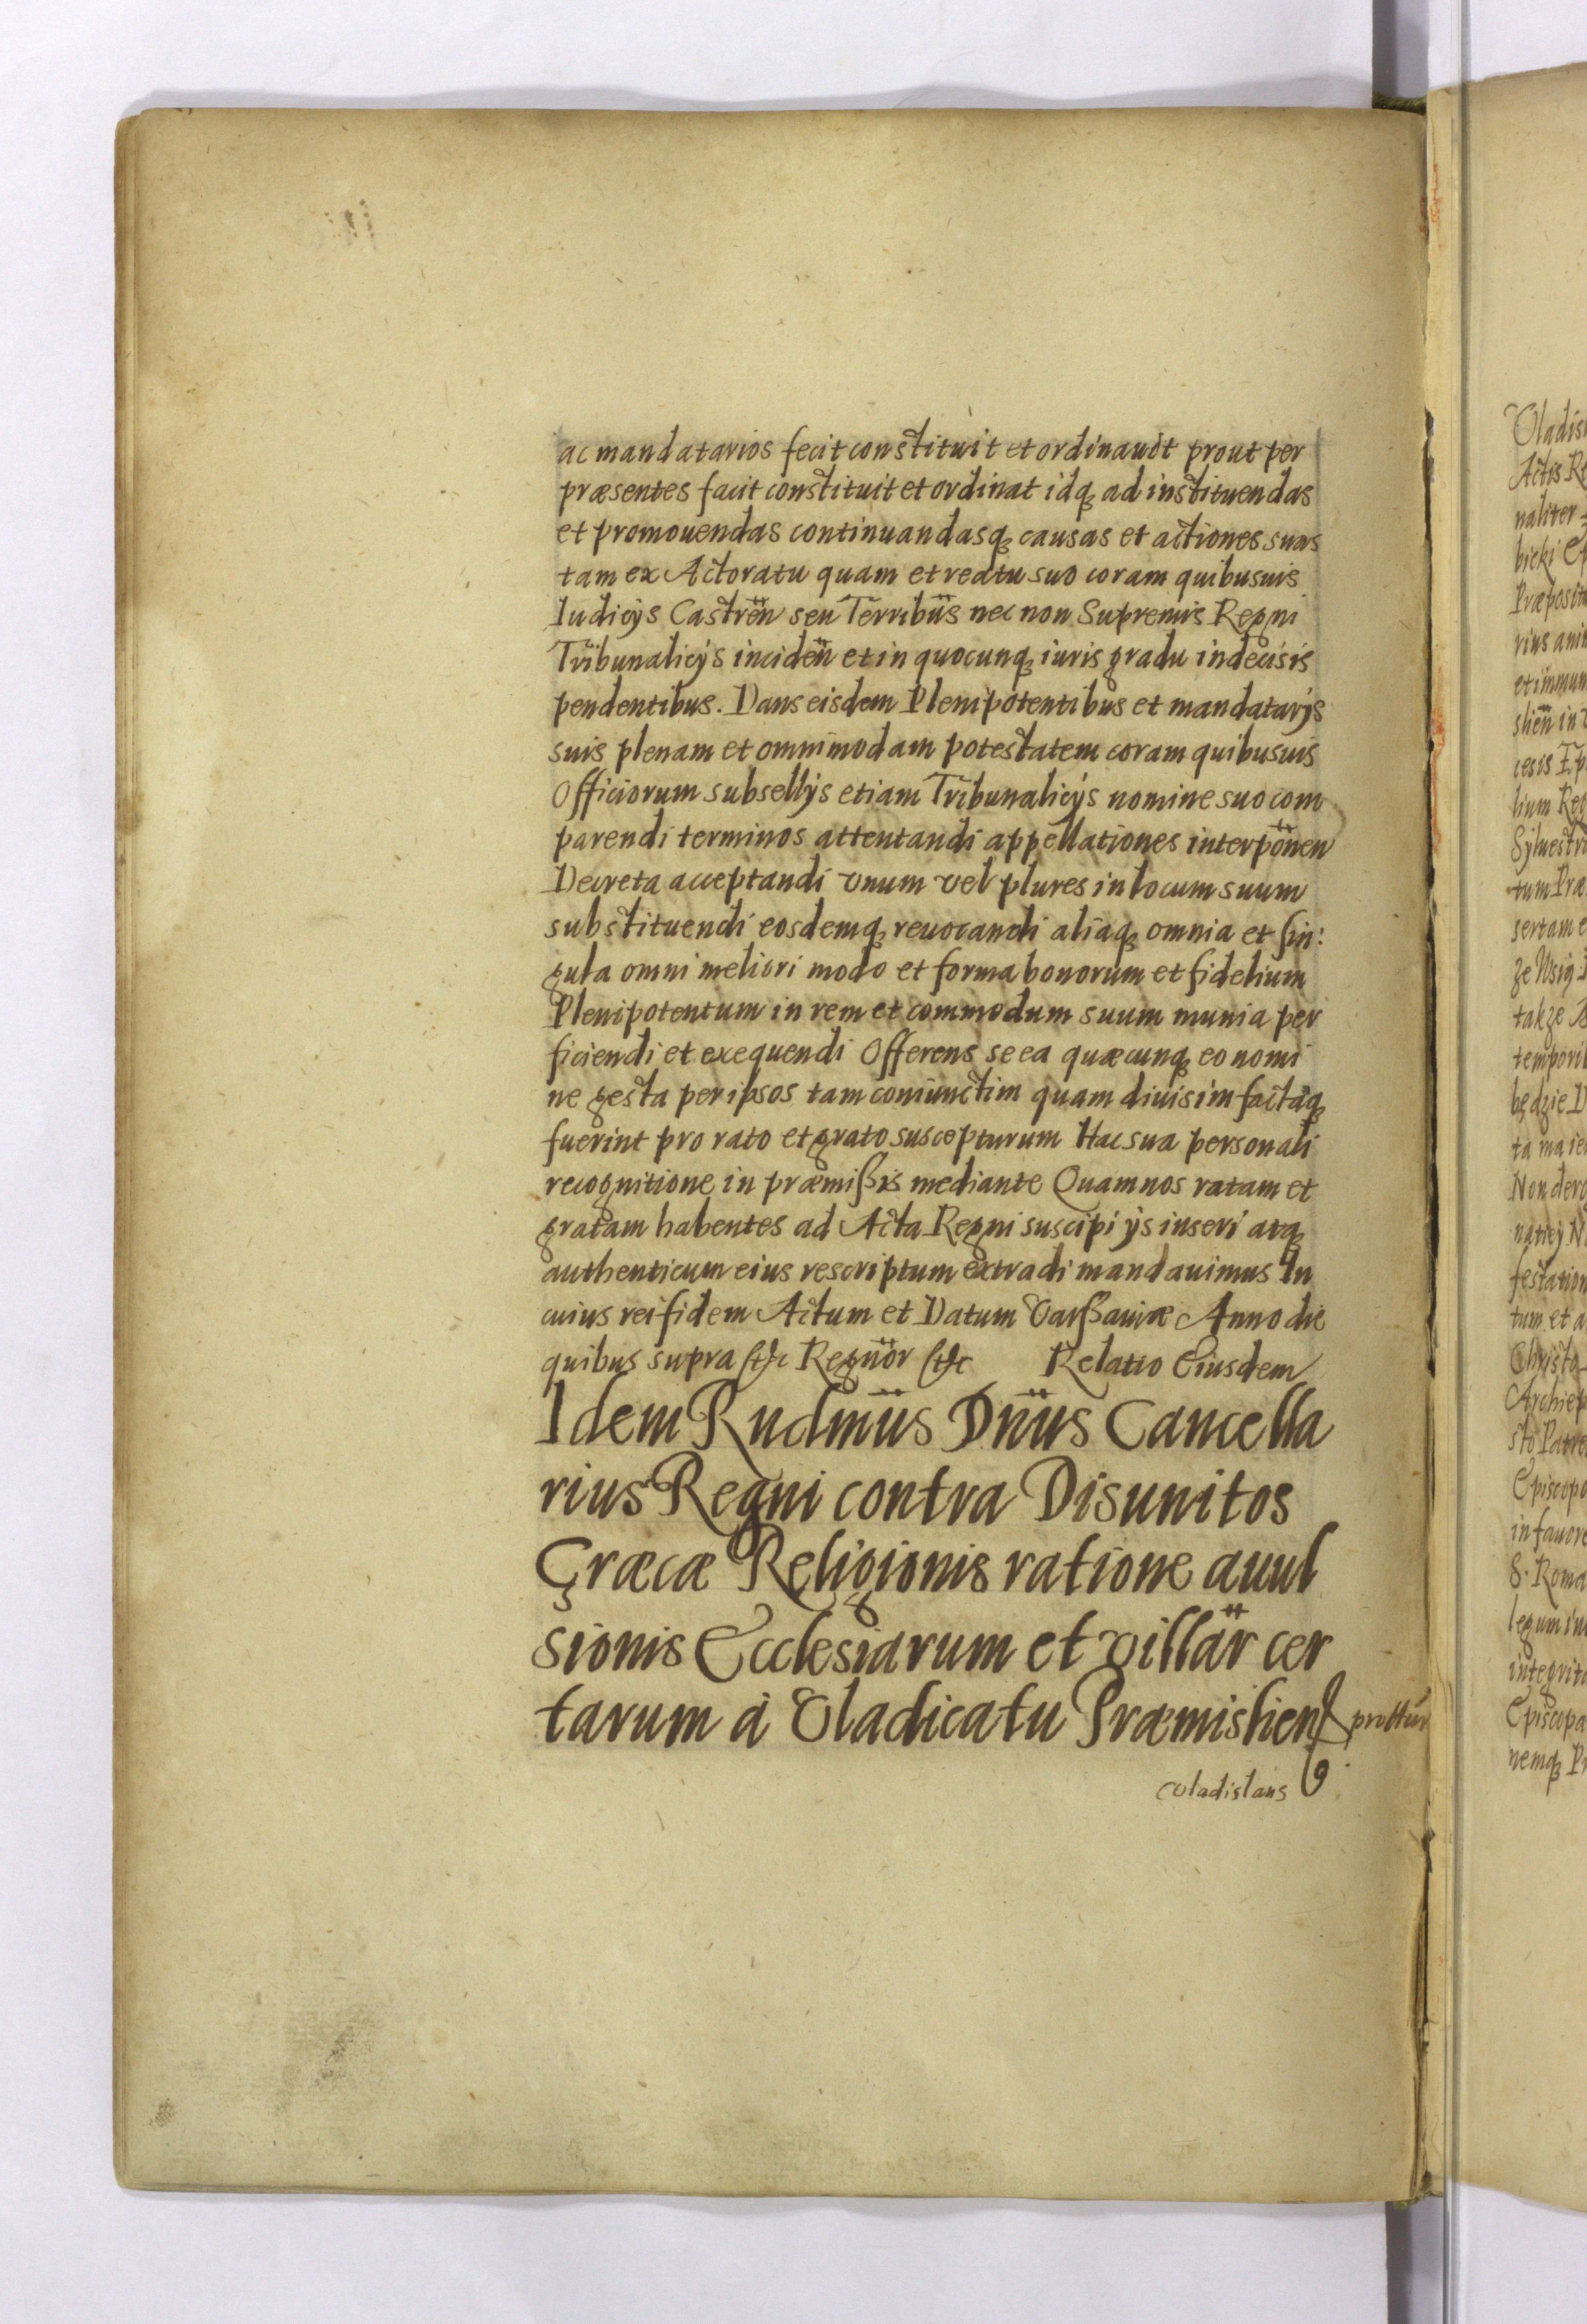 ac mandatarios fecit constituit et ordinauit prout per
præsentes facit constituit et ordinat idq ad instituendas
et promouendas continuandasq causas et actiones suas
tam ex Actoratu quam et reatu suo coram quibusuis
Iudicys Castren seu Terribus nec non Supremis Regni
Tribunalicys inciden et in quocunq iuris gradu indecisis
pendentibus. Dans eisdem Plenipotentibus et mandatarys
suis plenam et omnimodam potestatem coram quibusuis
Officiorum subsellys etiam Tribunalicys nomine suo com
parendi terminos attentandi appellationes interponen
Decreta acceptandi vnum vel plures in locum suum
substituendi eosdemq reuocandi aliaq omnia et sin:
gula omni meliori modo et forma bonorum et fidelium
Plenipotentum in rem et commodum suum munia per
ficiendi et exequendi Offerens se ea quæcunq eo nomi
ne gesta per ipsos tam coniunctim quam diuisim factaq
fuerint pro rato et grato suscepturum Hac sua personali
recognitione in præmißis mediante Quam nos ratam et
gratam habentes ad Acta Regni suscipi ys inseri atq
authenticum eius rescriptum extradi mandauimus In
cuius rei fidem Actum et Datum Varßauiæ Anno die
quibus supra &c Regnor &c Relatio Eiusdem
Idem Rndmus Dnus Cancella
rius Regni contra Disunitos
Græcæ Religionis ratione auul
sionis Ecclesiarum et villar cer
tarum à Vladicatu Præmislien prottur
Vladislaus
Vladis
Actis Re
naliter
bicki Ep
Præposit
rius
et immun
slien in
cesis
lium Reg
Syluestr
tum Præ
sertam e
że Wsią
także
tempori
będzie D
ta ma ie
Non dero
natiey N
festation
tum et a
Christo
Archiep
sto Patre
Episcopo
in fauore
S. Roma
legum
integrita
Episcopa
nemq Pr